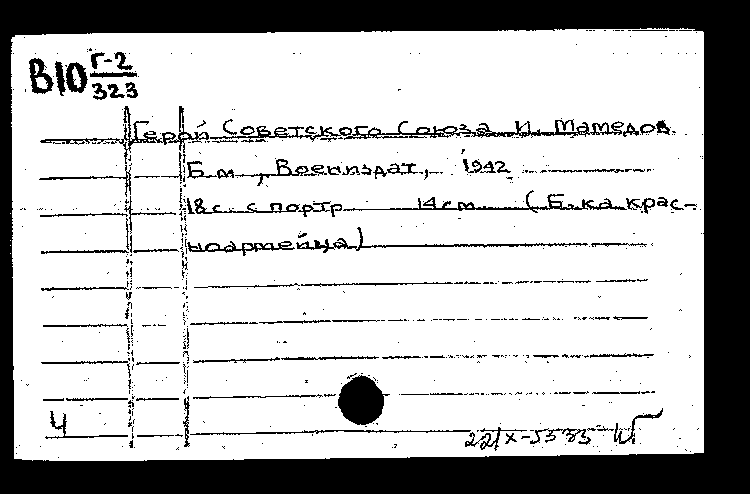 В10 Г-2
323
Герой Советского Союза И. Мамедов
Б.м., Воениздат, 1942
18 с. с портр 14 см (Б-ка крас-
ноармейца)
Ч